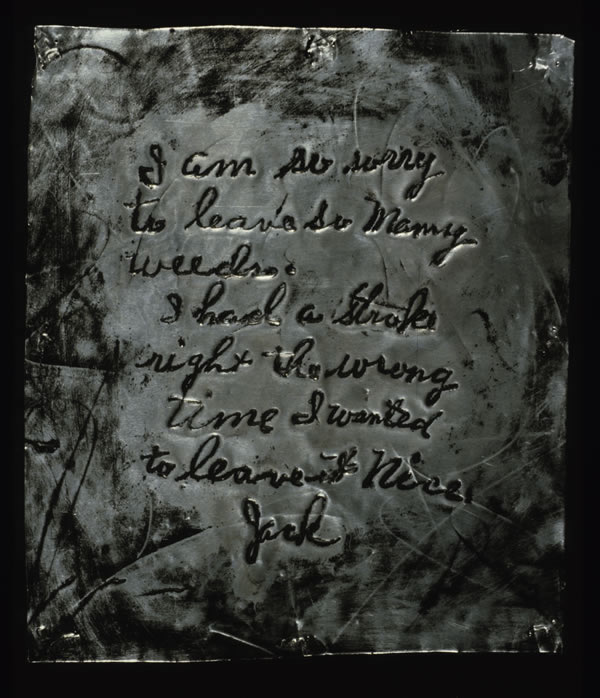 I am so sorry
to leave so Many
weeds.
I had a Stroke
right the wrong
time I wanted
to leave it Nice.
Jack